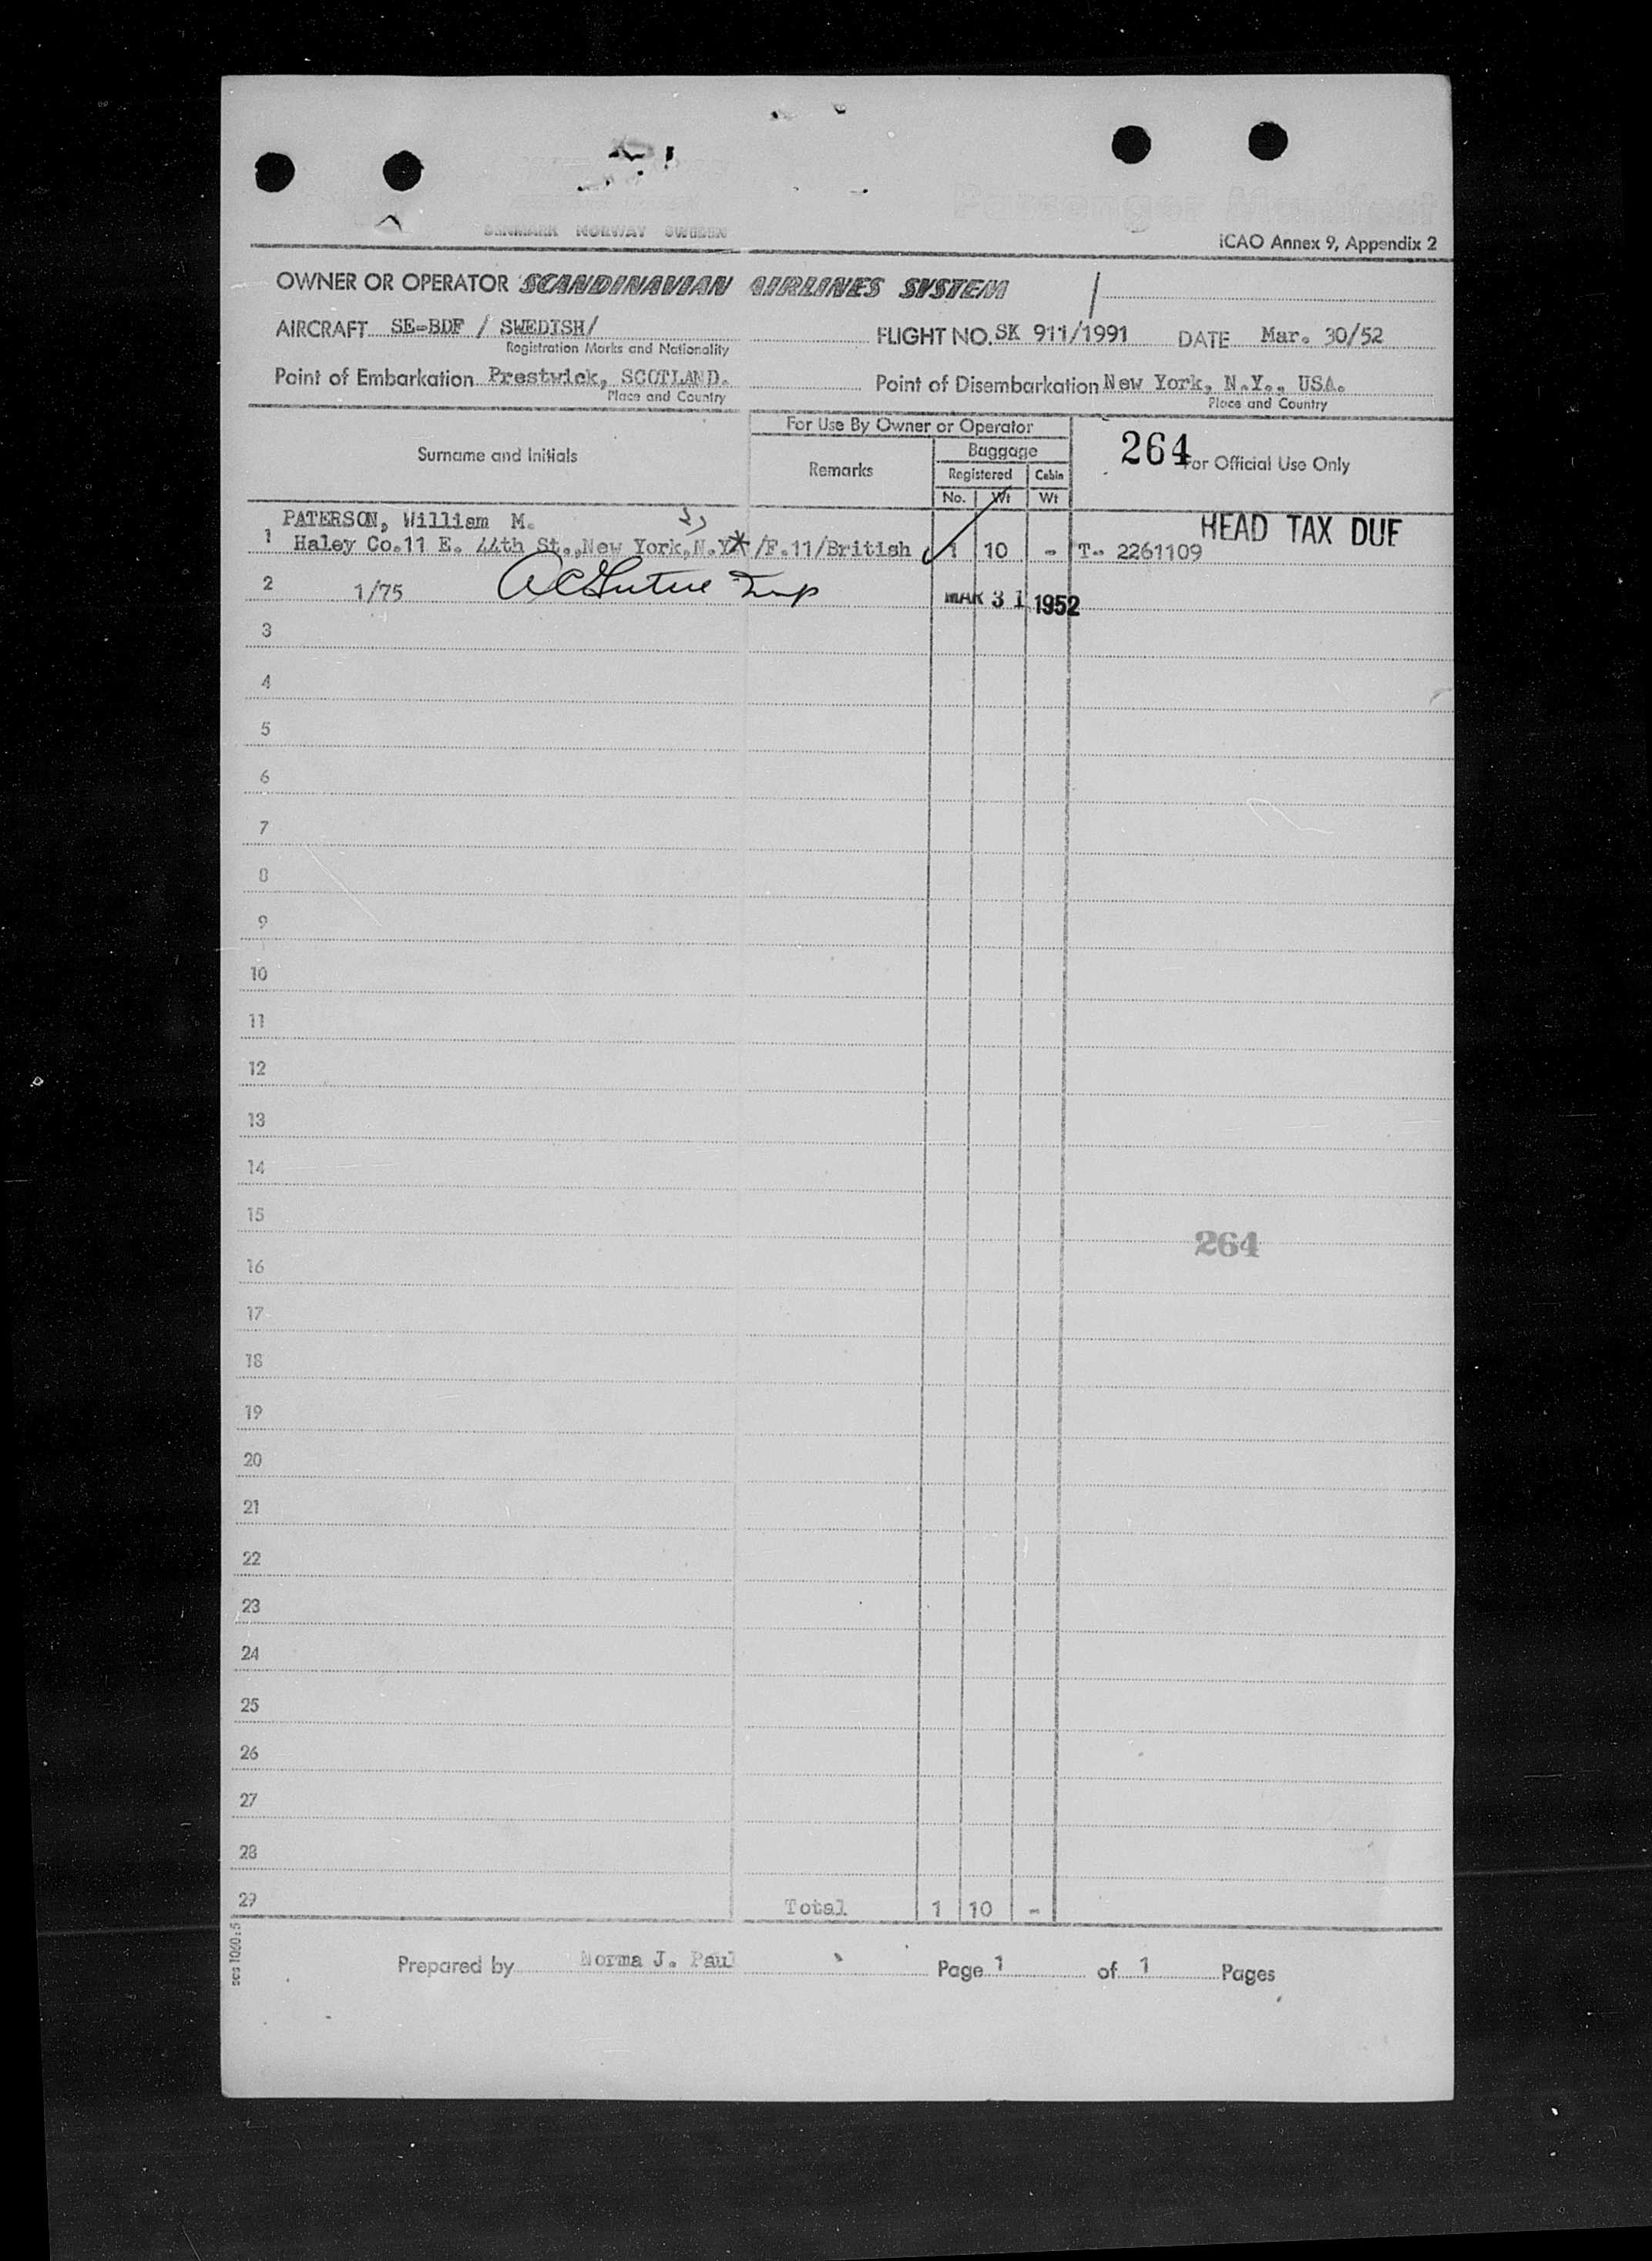 Passenger Manifest
DENMARK NORWAY SWEDEN
ICAO Annex 9, Appendix 2
OWNER OR OPERATOR SCANDINAVIAN AIRLINES SYSTEM
AIRCRAFT SE-BDF / SWEDISH/ FLIGHT NO. SK 911/1991 DATE Mar. 30/52
Registration Marks and Nationality
Point of Embarkation Prestwick, SCOTLAND. Point of Disembarkation New York, N.Y., USA.
Place and Country Place and Country
For Use By Owner or Operator
Surname and Initials Remarks Baggage 264 For Official Use Only
Registered Cabin
No. Wt Wt
PATERSON, William M. HEAD TAX DUE
1 Haley Co.11 E. 44th St.,New York,N.Y. /F.11/British 1 10 - T- 2261109
2 1/75 MAR 31 1952
3
4
5
6
7
8
9
10
11
12
13
14
15
264
16
17
18
19
20
21
22
23
24
25
26
27
28
29 Total 1 10 -
scs 1060:5
Prepared by Norma J. Paul Page 1 of 1 Pages